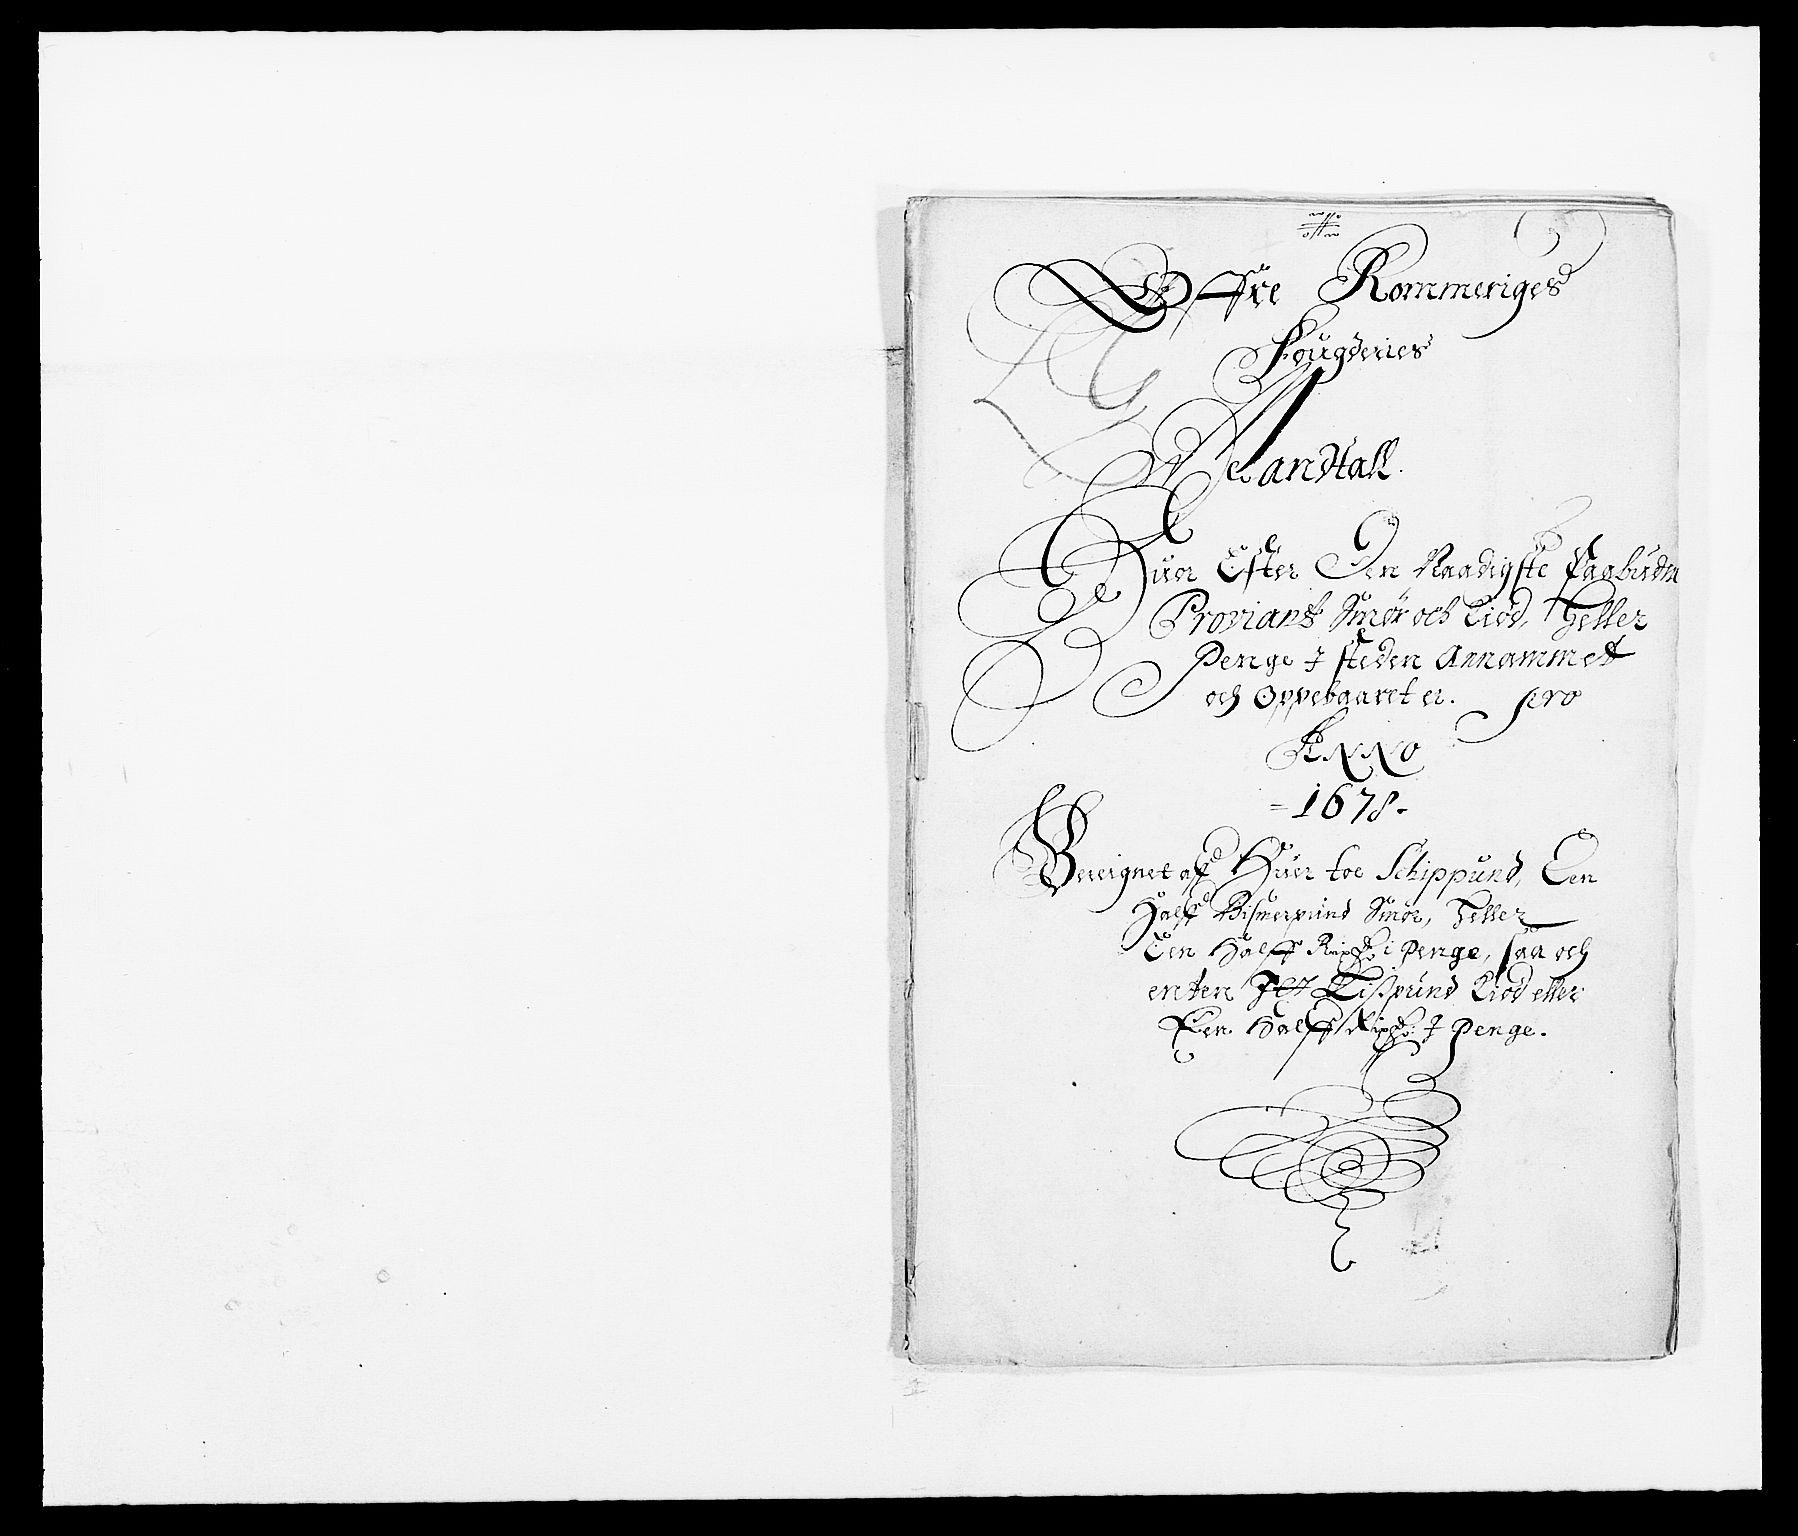 Øffre Rommeriges
Fougderies
Mandtall.
Huor Efter Den Naadigste Paabudne
Proviant Smør och Kiød, Heller
Penge I steden Annammet
och Oppebaaret er. pro
ANNO
= 1678 -
Bereignet aff Huer toe Schippund, Een
Halff Bismerpund Smør, Heller
Een Halff Rixdr. i Penge, saa och
enten Jet Lispund Kiød eller
Een Halff Rixdr. I Penge.